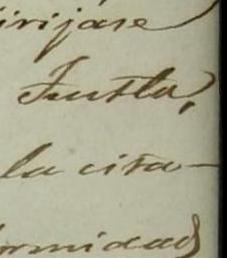 dirijase
Justa,
la cita-
ormidad